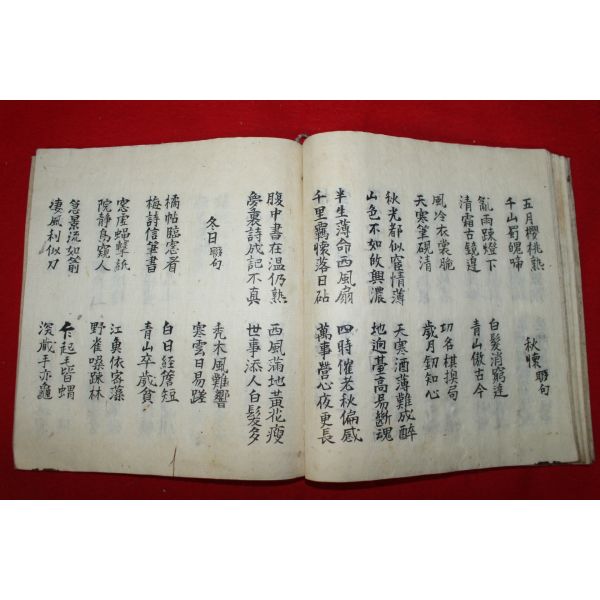 五月櫻桃熟
千山蜀魄啼
秋懷聯句
亂雨踈燈下 白髮消窮達
清霜古鏡邊 青山傲古今
風冷衣裳脆 功名棋換局
天寒筆硯清 歲月釰知心
秋光都似宦情薄 天寒酒薄難成醉
山色不如故興濃 地逈臺高易斷魂
半生薄命西風扇 四時催老秋偏感
千里羈懷落日砧 萬事營心夜更長
腹中書在溫仍熟 西風滿地黃花瘦
夢裏詩成記不真 世事添人白髮多
冬日聯句
禿木風難響
寒雲日易蹉
橘帖臨窓看 白日經簷短
梅詩信筆書 青山卒歲食
窓虛蝇擊紙 江魚依客藻
院靜鳥窺人 野雀噪踈林
急景流如箭 乍起皆蝟
凄風利似刀 深藏手亦龜